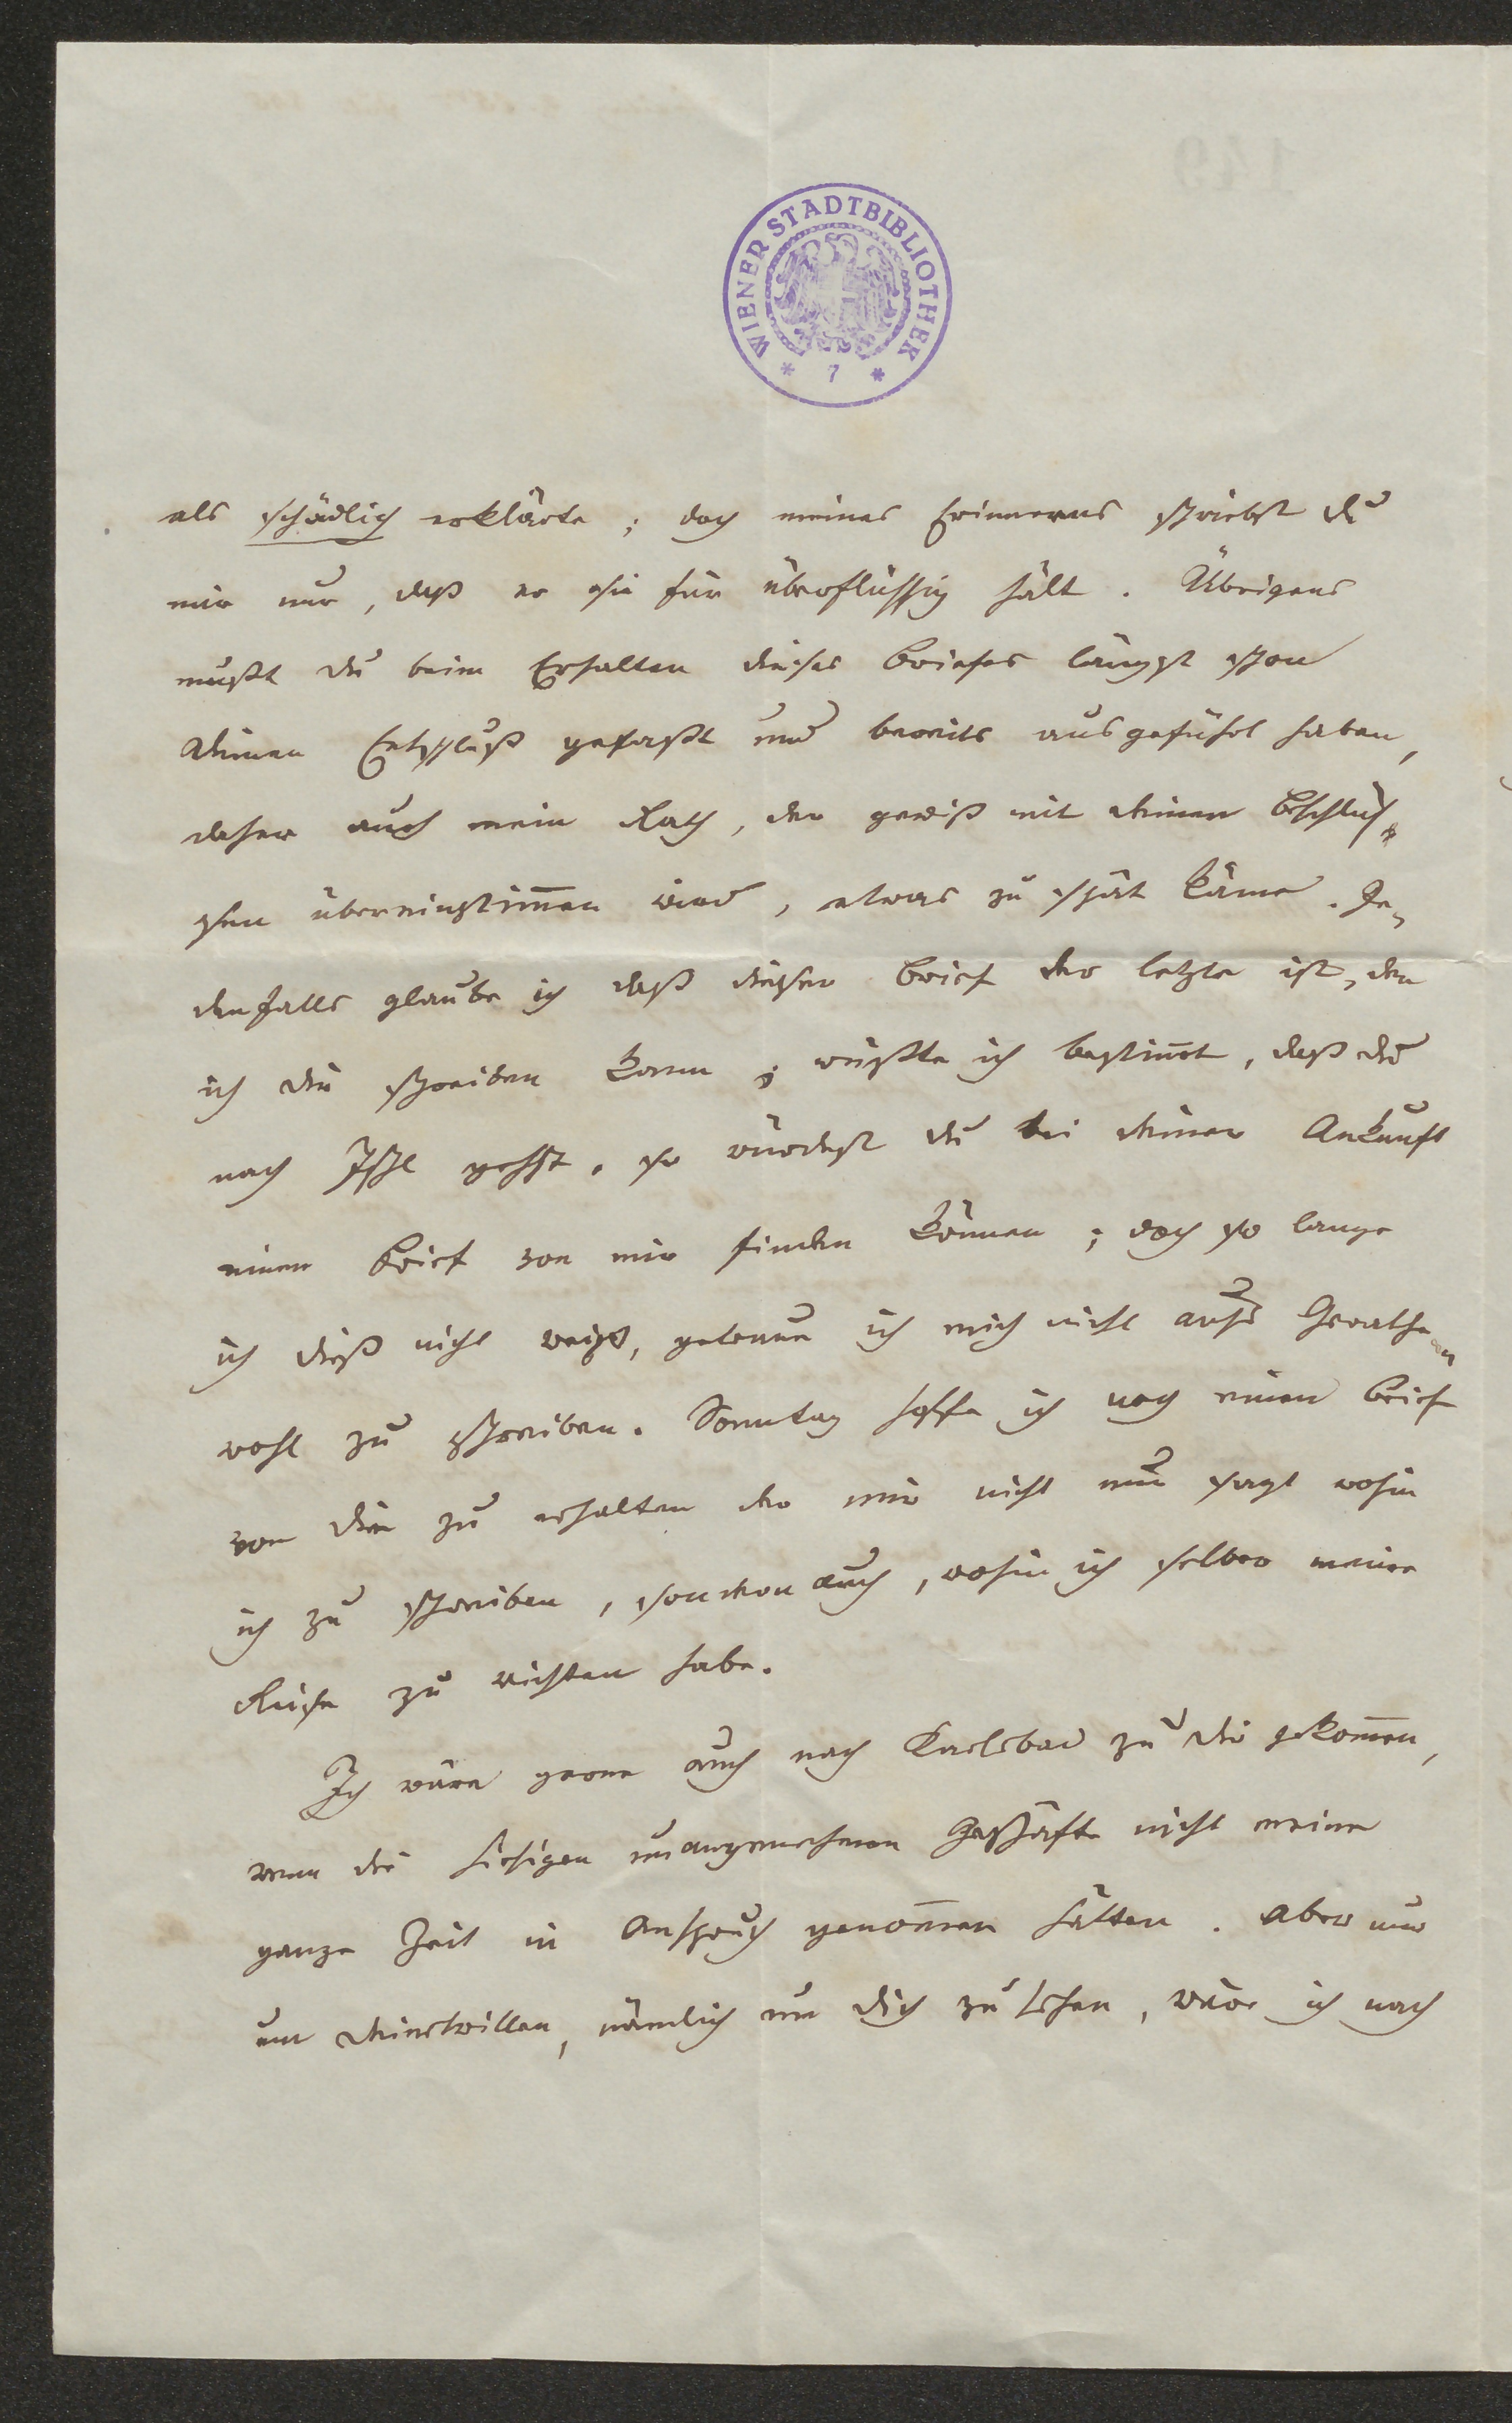 WIENER STADTBIBLIOTHEK
* 7 *
als schädlich erklärte; doch meines Erinnerns schriebst du
mir nur, daß er sie für überflüssig hält. Übrigens
mußt du beim Erhalten dieses Briefes längst schon
deinen Entschluß gefaßt und bereits ausgeführt haben,
daher auch mein Rath, der gewiß mit deinen Beschlüs-
sen übereinstim̅en wird, etwas zu spät käme. Je-
denfalls glaube ich daß dieser Brief der letzte ist, den
ich dir schreiben kann; wüßte ich bestim̅t, daß du
nach Ischl gehst, so würdest du bei deiner Ankunft
einen Brief von mir finden können; doch so lange
ich dieß nicht weiß, getraue ich mich nicht aufs Gerathe-
wohl zu schreiben. Sonntag hoffe ich noch einen Brief
von dir zu erhalten der mir nicht nur sagt wohin
ich zu schreiben, sondern auch, wohin ich selber meine
Reise zu richten habe.
Ich wäre gerne auch nach Karlsbad zu dir gekom̅en,
wenn die hiesigen unangenehmen Geschäfte nicht meine
ganze Zeit in Anspruch genom̅en hätten. Aber nur
um deinetwillen, nämlich um dich zu sehen, wäre ich nach